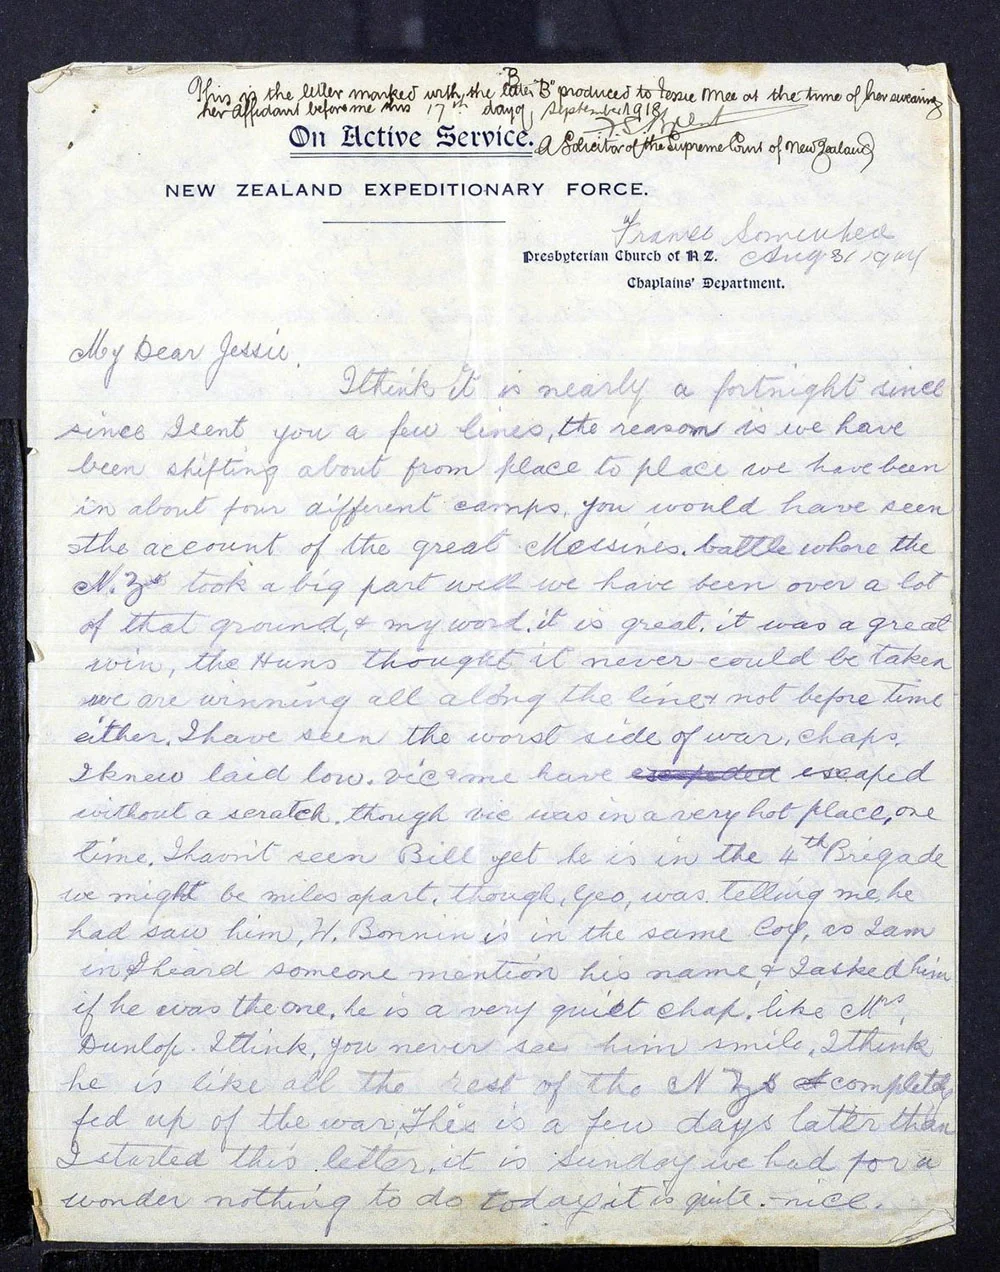 This is the letter marked with the letter "B" produced to Jessie Mee at the time of her swearing
her affidavit before me this 17th day of September 1918
On Active Service.
A Solicitor of the Supreme Court of New Zealand
NEW ZEALAND EXPEDITIONARY FORCE.
France Somewhere
Presbyterian Church of N.Z. Aug 31
Chaplains' Department.
My Dear Jessie.
I think it is nearly a fortnight since
since I sent you a few lines, the reason is we have
been shifting about from place to place we have been
in about four different camps, you would have seen
the account of the great Messines. battle where the
N.Zs took a big part well we have been over a lot
of that ground, & my word. it is great. it was a great
win, the Huns thought it never could be taken
we are winning all along the line & not before time
either. I have seen the worst side of war, chaps.
I knew laid low. vic & me have escapeded escaped
without a scratch. though vic was in a very hot place, one
time. I havn't seen Bill yet he is in the 4th Brigade
we might be miles apart. though, Geo, was telling me, he
had saw him, H. Bonnin is in the same Coy, as I am
in I heard someone mention his name & I asked him
if he was the one, he is a very quiet chap. like Mrs.
Dunlop. I think, you never see him smile, I think
he is like all the rest of the N Zs completely
fed up of the war, This is a few days latter than
I started this letter, it is Sunday we had for a
wonder nothing to do today it is quite. nice.